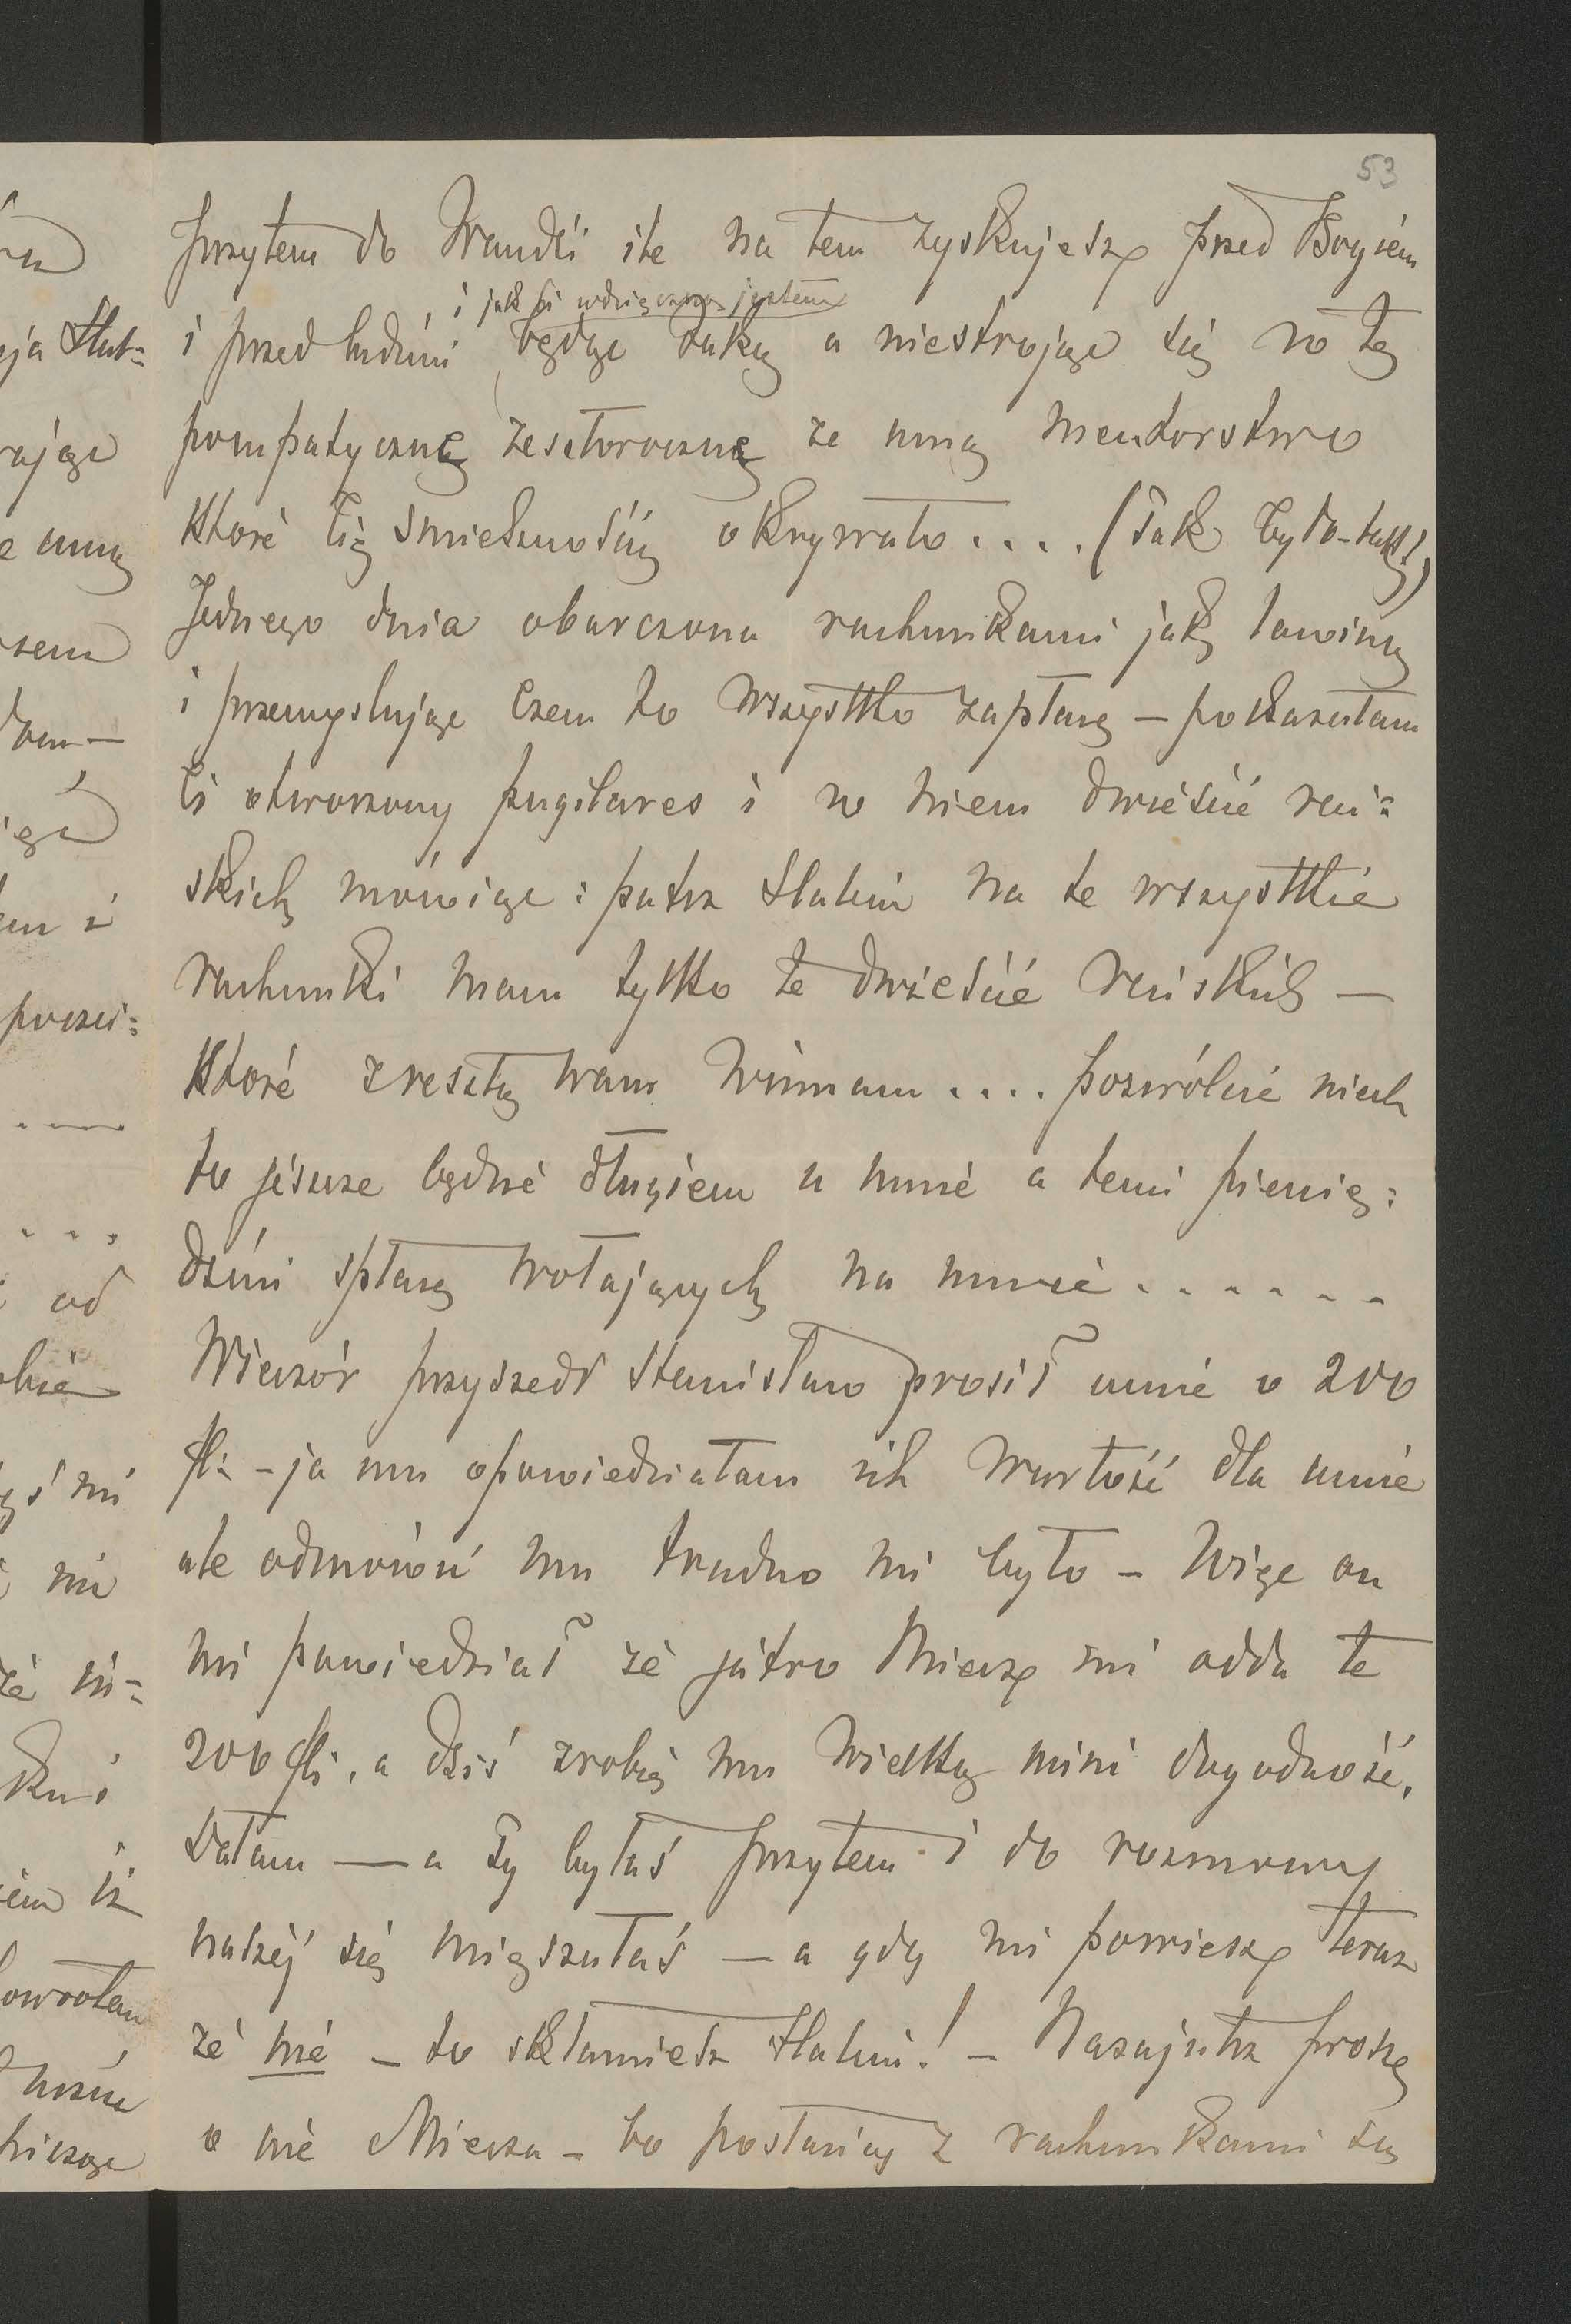 53
przytem do Wandzi ile na tem zyskujesz przed Bogiem
i jak ci wdzięczną jestem
i przed ludźmi będąc taką a niestrojąc się w tę
pompatyczną zesztoroczną ze mną mentorstwo
które Cię śmiesznością okrywało.... (Tak było-tak!)
Jednego dnia obarczona rachunkami jak lawiną
i przemyślując czem to wszystko zapłacę — pokazałam
Ci otworzony pugilares i w niem dwieście reń=
skich mówiąc: patrz Halciu na te wszystkie
rachunki mam tylko te dwieście reńskich —
które zresztą wam winnam.... pozwólcie niech
to jeszcze będzie długiem u mnie a temi pienię=
dzmi spłacę wołających na mnie......
Wieczór przyszedł Stanisław prosił mnie o 200
fl: - ja mu opowiedziałam ich wartość dla mnie
ale odmówić mu trudno mi było - Więc on
mi powiedział że jutro Miecz mi odda te
200 fl:, a dziś zrobię mu wielką niemi dogodność.
Dałam — a Ty byłaś przytem i do rozmowy
naszéj się mięszałaś — a gdy mi powiesz teraz
że nie - to skłamiesz Halciu! - Nazajutrz proszę
o nie Miecza - bo posłańcy z rachunkami są